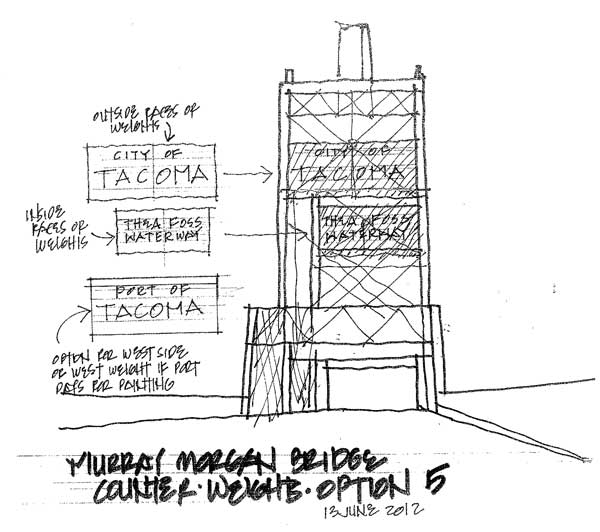 OUTSIDE FACES OF
WEIGHTS
CITY OF
TACOMA
INSIDE
FACES OF
WEIGHTS
THEA FOSS
WATERWAY
PORT OF
TACOMA
OPTION FOR WEST SIDE
OF WEST WEIGHT IF PORT
PAYS FOR PAINTING
CITY OF
TACOMA
THEA FOSS
WATERWAY
MURRAY MORGAN BRIDGE
COUNTER·WEIGHTS·OPTION 5
13 JUNE 2012